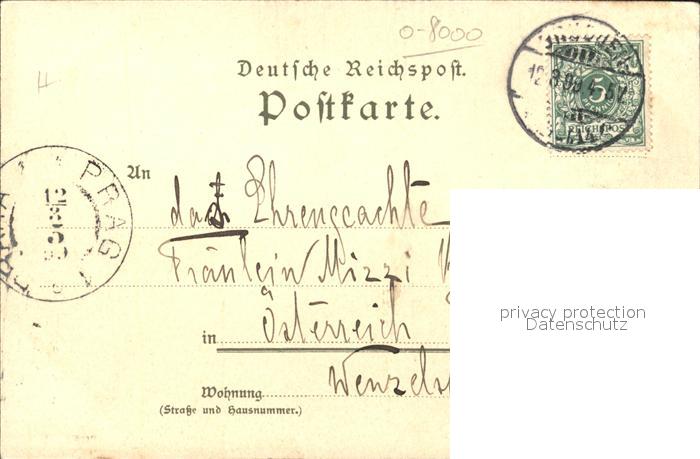 0-8000
Deutsche Reichspost.
Postkarte.
5
REICHSPOST
PRAG
An
Ehrengeachte
Fräulein Mizzi
in Österreich
Wenzels
Wohnung
(Straße und Hausnummer.)
privacy protection
Datenschutz